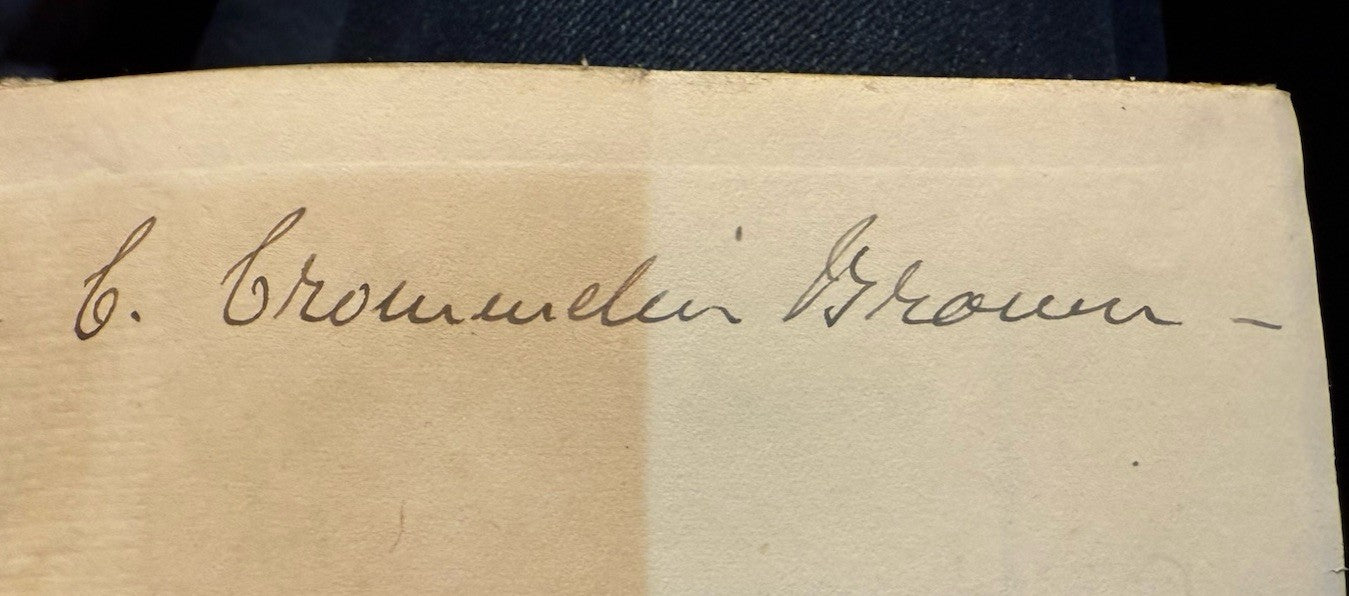 C. Crommelin Brown -